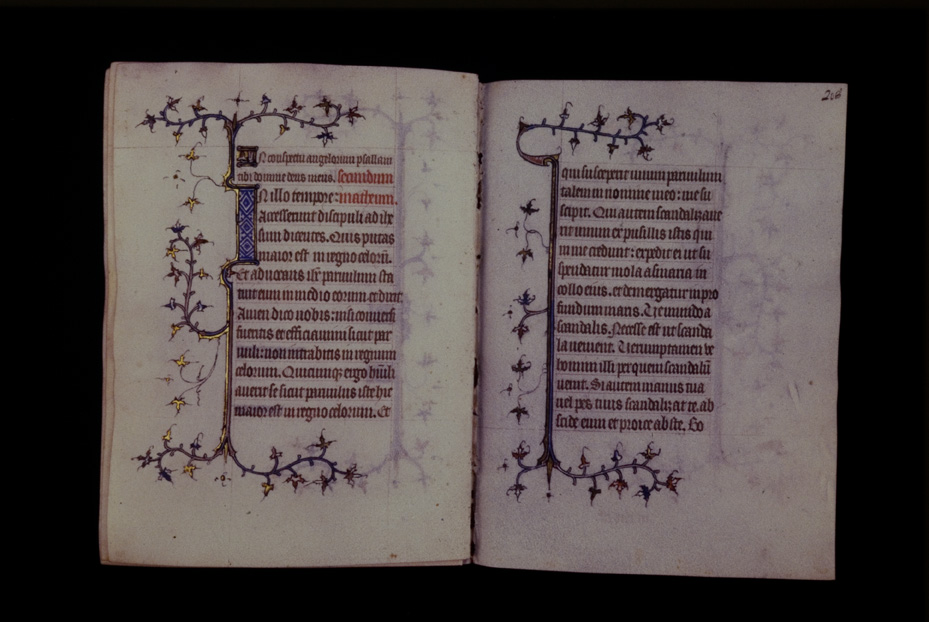 In conspectu angelorum psallam
tibi domine deus meus. secundum
In illo tempore: matheum.
Accesserunt discipuli ad ih̄e
sum dicentes. Quis putas
maior est in regno celorū.
Et aduocans ih̄s paruulum sta
tuit eum in medio eorum et dixit.
Amen dico uobis: nisi conuersi
fueritis et efficiamini sicut par
uuli: non intrabitis in regnum
celorum. Quicumq ergo humili
auerit se sicut paruulus iste hic
maior est in regno celorum. Et
208
qui susceperit unum paruulum
talem in nomine meo: me su
scipit. Qui autem scandalizaue
rit unum ex pusillis istis qui
in me credunt: expedit ei ut su
spendatur mola asinaria in
collo eius. et demergatur in pro
fundum maris. Ue mundo a
scandalis. Necesse est ut scanda
la ueniant. Uerumptamen ve
homini illi per quem scandalū
uenit. Si autem manus tua
uel pes tuus scandalizat te. ab
scide eum et proice abs te. Bo